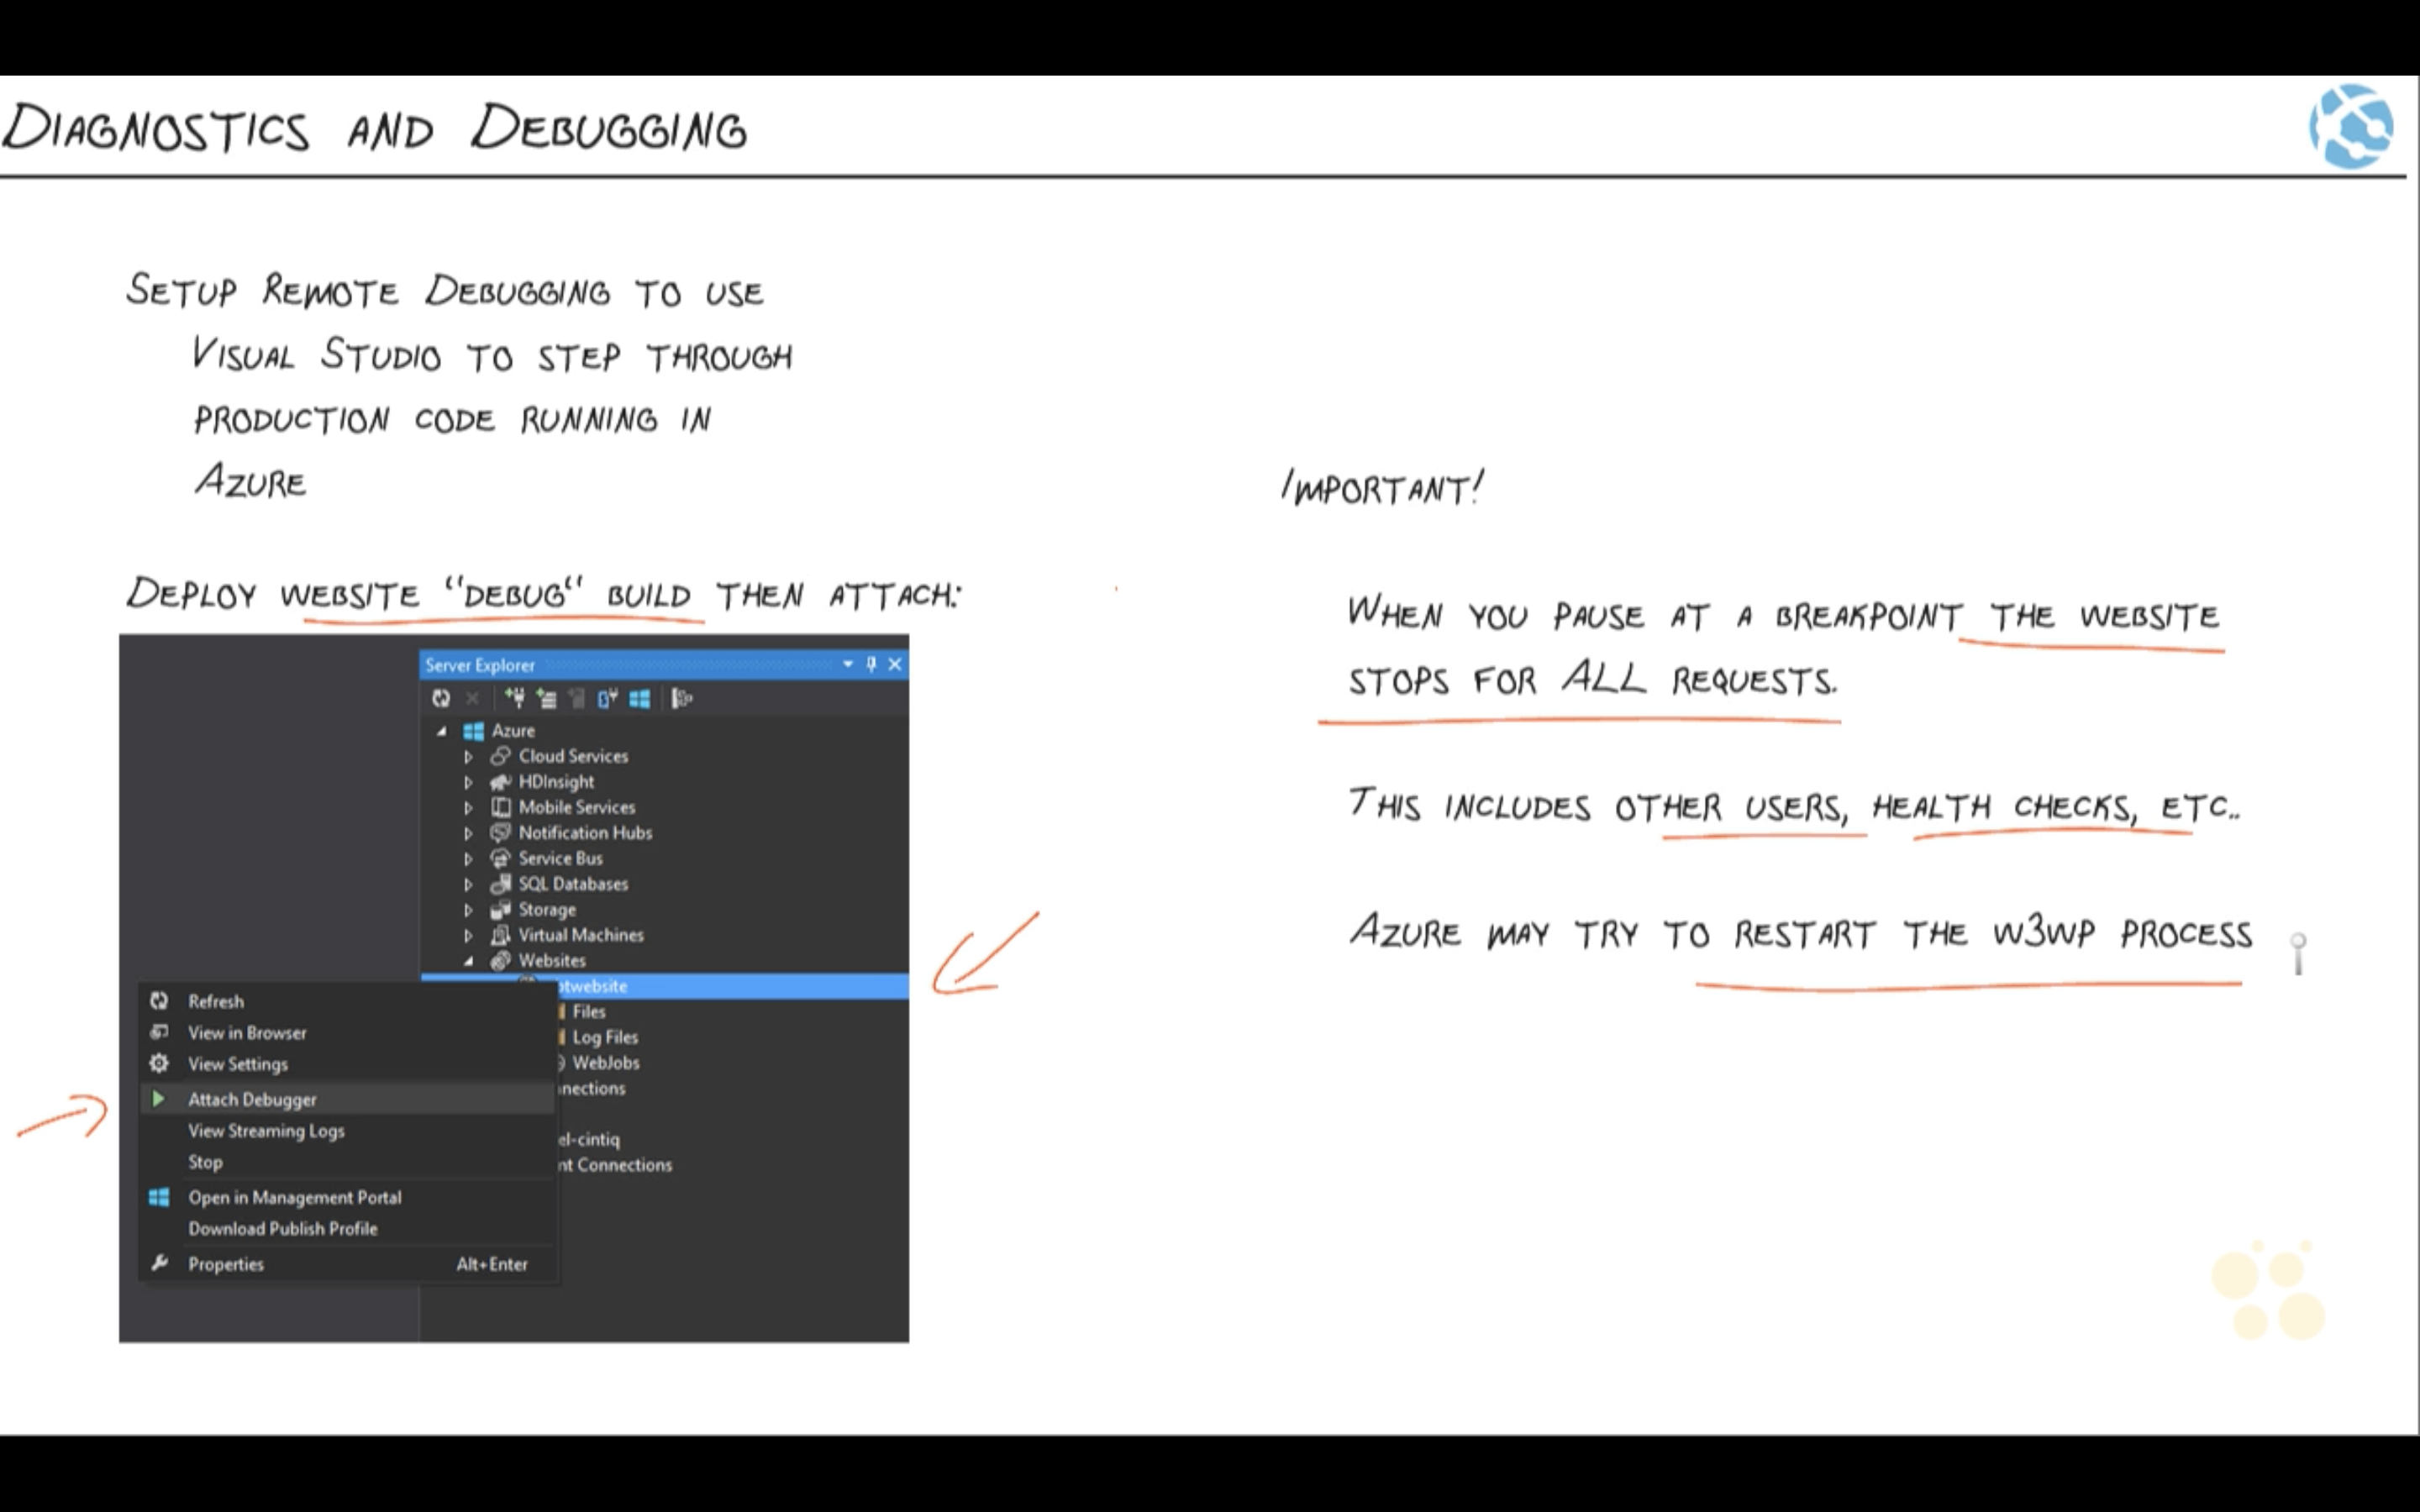 Diagnostics and Debugging
Setup Remote Debugging to use
Visual Studio to step through
production code running in
Azure
Deploy website “debug“ build then attach:
Server Explorer
Azure
Cloud Services
HDInsight
Mobile Services
Notification Hubs
Service Bus
SQL Databases
Storage
Virtual Machines
Websites
otwebsite
Files
Log Files
WebJobs
nnections
el-cintiq
nt Connections
Refresh
View in Browser
View Settings
Attach Debugger
View Streaming Logs
Stop
Open in Management Portal
Download Publish Profile
Properties Alt+Enter
Important!
When you pause at a breakpoint the website
stops for ALL requests.
This includes other users, health checks, etc..
Azure may try to restart the w3wp process